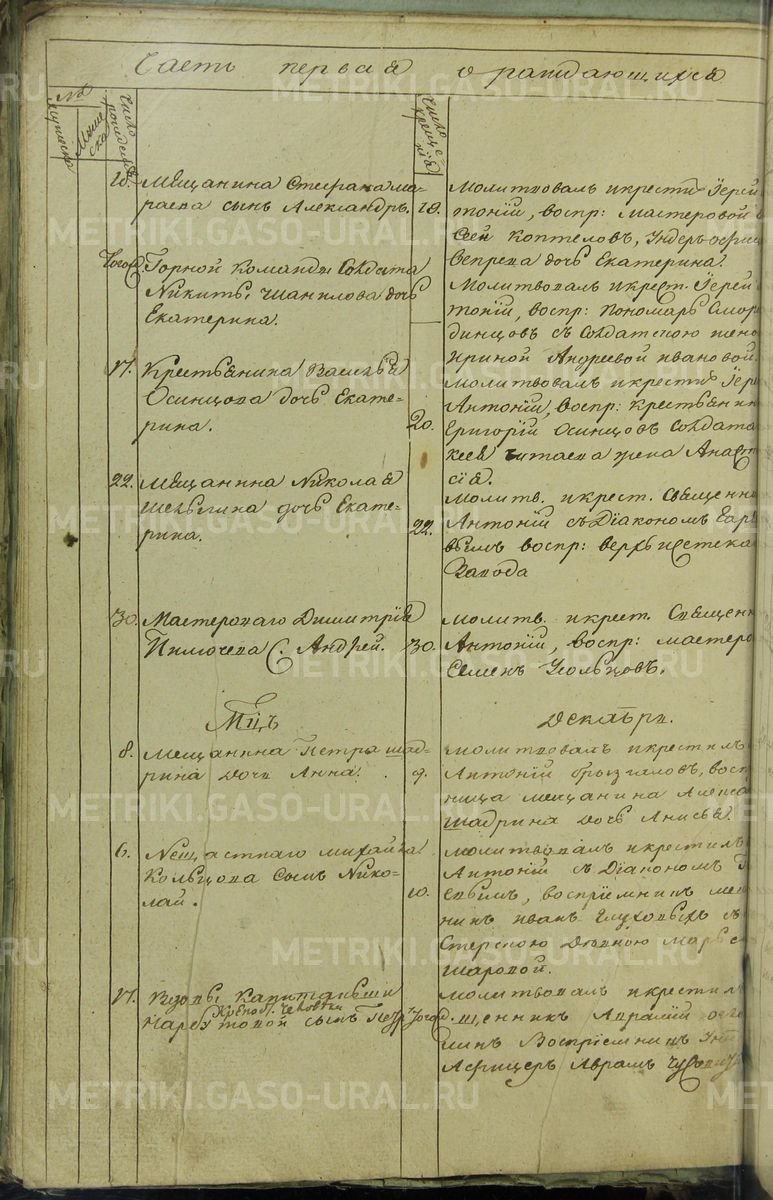 Часть первая о раждающихся
№
Мужеска
Женска
Число рожденія
Число крещенія
18. Мѣщанина Стефана Ма-
раева сынъ Александръ.
19. Молитвовалъ и крести Іерей
тоній, воспр: мастеровой
сей Коптеловъ, Ундеръ офиц
Вепрева дочь Екатерина.
Того Горной команды Солдата
Никиты Шанилова дочь
Екатерина.
Молитвовалъ и крест. Іерей
тоній, воспр: Пономарь Смор
динцовъ съ Солдатскою жено
Ириной Андреевой Ивановой.
17. Крестьянина Василья
Осинцова дочь Екате-
рина.
20.
Молитвовалъ и крести Іер
Антоній, воспр: крестьянин
Григорій Осинцовъ Солдата
жена Анас
сія.
22. Мѣщанина Николая
дочь Екате-
рина.
22.
Молитв. и крест. Священни
Антоній съ Діакономъ
вымъ воспр: Верхъ Исетска
Завода
30. Мастероваго Димитрія
Пимочева С. Андрей.
30.
Молитв. и крест. Священн
Антоній, воспр: мастеро
Семенъ Усольцовъ.
Мцъ Декабрь.
8. Мещанина Петра Шад-
рина Дочь Анна.
9.
Молитвовалъ и крестилъ
Антоній Брызгаловъ, восп
ница мещанина Алекса
Шадрина дочь Анисья.
6. Нещастнаго Михайла
Кольцова Сынъ Нико-
лай.
10.
Молитвовалъ и крестилъ
Антоній съ Діакономъ
воспріемникъ меща
нинъ Иванъ Глуховыхъ съ
стерскою Дѣвкою Марь
Шаровой.
17. Вдовы Капитанши
Крѣпос. Человѣка
сынъ Петр
Тогожъ
Молитвовалъ и крестилъ
щенникъ Аврамій
Воспріемникъ Унт
Афицеръ Аврамъ
METRIKI.GASO-URAL.RU